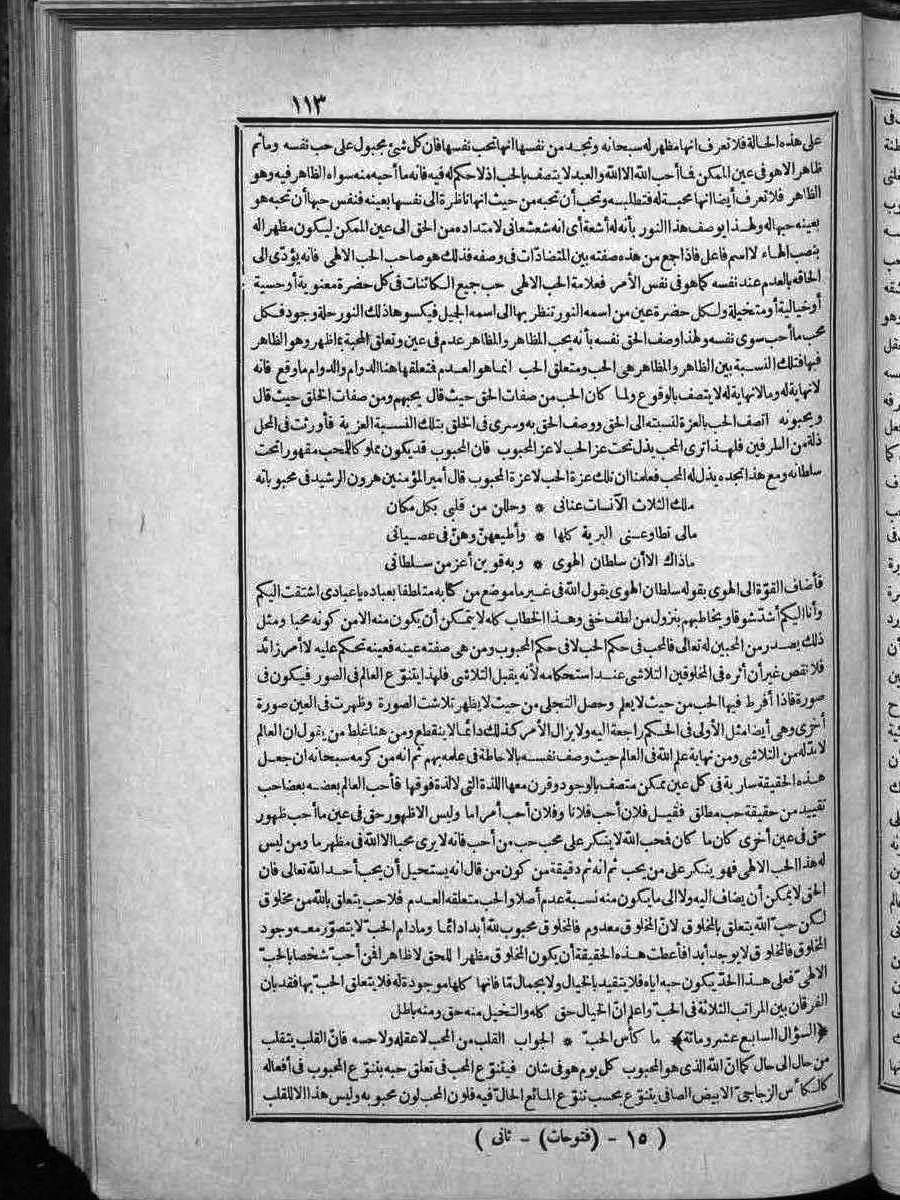 ١١٣
على هذه الحالة فلا تعرف انها مظهر له سبحانه وتجد من نفسها انها تحب نفسها فان كل شئ مجبول على حب نفسه وما ثم
ظاهر الا هو فى عين الممكن فما أحب الله الا الله والعبد لا يتصف بالحب اذ لا حكم له فيه فانه ما أحبه منه سواه الظاهر فيه وهو
الظاهر فلا تعرف أيضا انها محبة له فتطلبه وتحب أن تحبه من حيث انها ناظرة الى نفسها بعينه فنفس حبها أن تحبه هو
بعينه حبها له ولهذا يوصف هذا النور بأنه له أشعة أى انه شعشعانى لامتداده من الحق الى عين الممكن ليكون مظهرا له
بنصب الهاء لا اسم فاعل فاذا جمع من هذه صفته بين المتضادّات فى وصفه فذلك هو صاحب الحب الالهى فانه يؤدّى الى
الحاقه بالعدم عند نفسه كما هو فى نفس الأمر فعلامة الحب الالهى حب جميع الكائنات فى كل حضرة معنوية أو حسية
أو خيالية أو متخيلة ولكل حضرة عين من اسمه النور تنظر بها الى اسمه الجميل فيكسوها ذلك النور حلة وجود فكل
محب ما أحب سوى نفسه ولهذا وصف الحق نفسه بأنه يحب المظاهر والمظاهر عدم فى عين وتعلق المحبة بما ظهر وهو الظاهر
فيها فتلك النسبة بين الظاهر والمظاهر هى الحب ومتعلق الحب انما هو العدم فتعلقها هنا الدوام والدوام ما وقع فانه
لا نهاية له وما لا نهاية له لا يتصف بالوقوع ولما كان الحب من صفات الحق حيث قال يحبهم ومن صفات الخلق حيث قال
ويحبونه اتصف الحب بالعزة لنسبته الى الحق ووصف الحق به وسرى فى الخلق بتلك النسبة العزية فأورثت فى المحل
ذلة من الطرفين فلهذا ترى المحب يذل تحت عز الحب لا عز المحبوب فان المحبوب قد يكون مملوكا للمحب مقهورا تحت
سلطانه ومع هذا تجده يذل له المحب فعلمنا ان تلك عزة الحب لا عزة المحبوب قال أمير المؤمنين هرون الرشيد فى محبوباته
ملك الثلاث الآنسات عنانى * وحللن من قلبى بكل مكان
مالى تطاوعنى البرية كلها * وأطيعهنّ وهنّ فى عصيانى
ماذاك الا أن سلطان الهوى * وبه قوين أعز من سلطانى
فأضاف القوّة الى الهوى بقوله سلطان الهوى يقول الله فى غير ما موضع من كتابه متلطفا بعباده يا عبادى اشتقت اليكم
وأنا اليكم أشدّ شوقا ويخاطبهم بنزول من لطف خفى وهذا الخطاب كله لا يتمكن أن يكون منه الا من كونه محبا ومثل
ذلك يصدر من المحبين له تعالى فالمحب فى حكم الحب لا فى حكم المحبوب ومن هى صفته عينه فعينه تحكم عليه لا أمر زائد
فلا نقص غير أن أثره فى المخلوقين التلاشى عند استحكامه لأنه يقبل التلاشى فلهذا يتنوّع العالم فى الصور فيكون فى
صورة فاذا أفرط فيها الحب من حيث لا يعلم وحصل التجلى من حيث لا يظهر تلاشت الصورة وظهرت فى العين صورة
أخرى وهى أيضا مثل الأولى فى الحكم راجعة اليه ولا يزال الأمر كذلك دائما لا ينقطع ومن هنا غلط من يقول ان العالم
لا بدّ له من التلاشى ومن نهاية علم الله فى العالم حيث وصف نفسه بالاحاطة فى علمه بهم ثم انه من كرمه سبحانه ان جعل
هذه الحقيقة سارية فى كل عين ممكن متصف بالوجود وقرن معها اللذة التى لا لذة فوقها فأحب العالم بعضه بعضا حب
تقييد من حقيقة حب مطلق فقيل فلان أحب فلانا وفلان أحب أمرا ما وليس الا ظهور حق فى عين ما أحب ظهور
حق فى عين أخرى كان ما كان فمحب الله لا ينكر على محب حب من أحب فانه لا يرى محبا الا الله فى مظهر ما ومن ليس
له هذا الحب الالهى فهو ينكر على من يحب ثم انه ثم دقيقة من كون من قال انه يستحيل أن يحب أحد الله تعالى فان
الحق لا يمكن أن يضاف اليه ولا الى ما يكون منه نسبة عدم أصلا والحب متعلقه العدم فلا حب يتعلق بالله من مخلوق
لكن حبّ الله يتعلق بالمخلوق لانّ المخلوق معدوم فالمخلوق محبوب لله أبدا دائما وما دام الحبّ لا يتصوّر معه وجود
المخلوق فالمخلوق لا يوجد أبدا فأعطت هذه الحقيقة أن يكون المخلوق مظهرا للحق لا ظاهرا فمن أحبّ شخصا بالحبّ
الالهىّ فعلى هذا الحدّ يكون حبه اياه فلا يتقيد بالخيال ولا بجمال مّا فانها كلها موجودة له فلا يتعلق الحبّ بها فقد بان
الفرقان بين المراتب الثلاثة فى الحبّ واعلم انّ الخيال حق كله والتخيل منه حق ومنه باطل
﴿السؤال السابع عشر ومائة﴾ ما كأس الحبّ * الجواب القلب من المحب لا عقله ولا حسه فانّ القلب يتقلب
من حال الى حال كما انّ الله الذى هو المحبوب كل يوم هو فى شان فيتنوّع المحب فى تعلق حبه بتنوّع المحبوب فى أفعاله
كالكأس الزجاجىّ الابيض الصافى يتنوّع بحسب تنوّع المائع الحالّ فيه فلون المحب لون محبوبه وليس هذا الا للقلب
( ١٥ - (فتوحات) - ثانى )